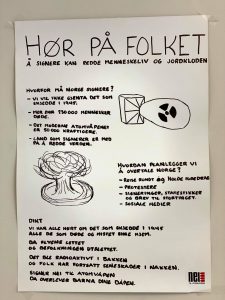 HØR PÅ FOLKET
Å SIGNERE KAN REDDE MENNESKELIV OG JORDKLODEN
HVORFOR MÅ NORGE SIGNERE?
- VI VIL IKKE GJENTA DET SOM
SKJEDDE I 1945.
- MER ENN 230 000 MENNESKER
DØDE.
- DET MODERNE ATOMVÅPENET
ER 50 000 KRAFTIGERE.
- LAND SOM SIGNERER ER MED
PÅ Å REDDE VERDEN.
HVORDAN PLANLEGGER VI
Å OVERTALE NORGE?
- REISE RUNDT OG HOLDE FOREDRAG
- PROTESTERE
- SIGNERINGER, STATSSTIKKER
OG BREV TIL STORTINGET.
- SOSIALE MEDIER
DIKT
VI HAR ALLE HØRT OM DET SOM SKJEDDE I 1945
ALLE DE SOM DØDE OG MISTET SINE HJEM.
DA FLYENE LETTET
OG BEFOLKNINGEN UTSLETTET.
DET BLE RADIOAKTIVT I BAKKEN
OG FOLK HAR FORTSATT SENESKADER I NAKKEN.
SIGNER NEI TIL ATOMVÅPEN
DA OVERLEVER BARNA DINE DÅPEN.
nei